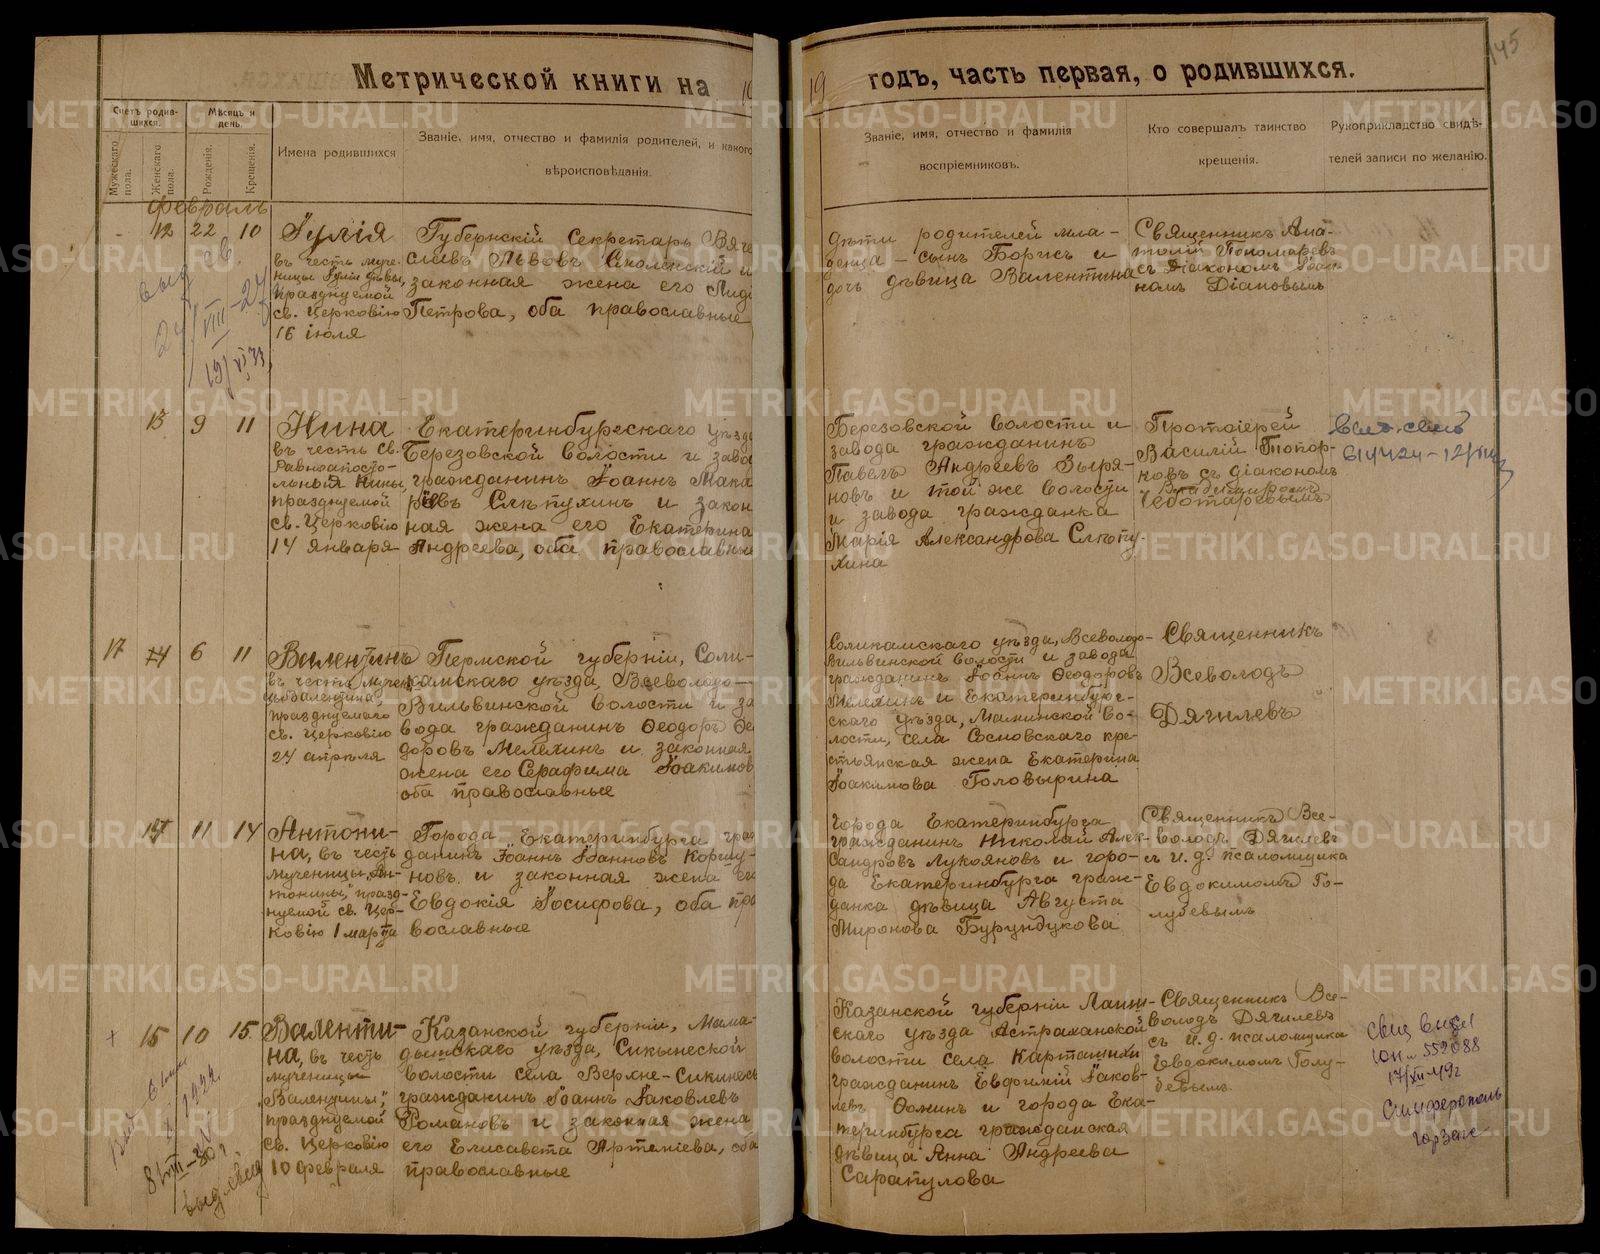 Метрической книги на
19 годъ, часть первая, о родившихся.
145
Счетъ родив-
шихся.
Мѣсяцъ и
день.
Мужескаго
пола.
Женскаго
пола.
Рожденія.
Крещенія.
Имена родившихся
Званіе, имя, отчество и фамилія родителей, и какого
вѣроисповѣданія.
Званіе, имя, отчество и фамилія
воспріемниковъ.
Кто совершалъ таинство
крещенія.
Рукоприкладство свидѣ-
телей записи по желанію.
февраль
12 22 10
Іулія
въ честь муче-
ницы Іуліи дѣвы,
празднуемой
св. Церковію
16 іюля
Губернскій Секретарь Вяче
славъ Львовъ Смоленскій и
законная жена его Лиді
Петрова, оба православные
дѣти родителей мла-
денца - сынъ Борисъ и
дочь дѣвица Валентина
Священникъ Ана-
толій Пономаревъ
съ Діакономъ Іоан-
номъ Діаповымъ
13 9 11
Нина
въ честь св.
Равноапосто-
льныя Нины,
празднуемой
св. Церковію
14 января
Екатеринбургскаго уѣзда
Березовской волости и заво
гражданинъ Іоаннъ Мака
ріевъ Слѣпухинъ и закон
ная жена его Екатерина
Андреева, оба православные
Березовской волости и
завода гражданинъ
Павелъ Андреевъ Зыря-
новъ и той же волости
и завода гражданка
Марія Александрова Слѣпу-
хина
Протоіерей
Василій Топор-
ковъ съ діакономъ
Владиміромъ
Чеботаревымъ
17 6 11
Валентинъ
въ честь мучен.
Валентина,
празднуемаго
св. Церковію
24 апрѣля
Пермской губерніи, Соли-
камскаго уѣзда, Всеволодо-
Вильвинской волости и за
вода гражданинъ Ѳеодоръ Ѳе
доровъ Мелехинъ и законная
жена его Серафима Іоакимов
оба православные
Соликамскаго уѣзда, Всеволодо-
Вильвинской волости и завода
гражданинъ Іоаннъ Ѳеодоровъ
Мелехинъ и Екатеринбург-
скаго уѣзда, Маминской во-
лости, села Сосновскаго кре-
стьянская жена Екатерина
Іоакимова Головырина
Священникъ
Всеволодъ
Дягилевъ
14 11 14
Антони-
на, въ честь
мученицы „Ан-
тонины", празд-
нуемой св. Цер-
ковію 1 марта
Города Екатеринбурга гра
данинъ Іоаннъ Іоанновъ Коршу-
новъ и законная жена его
Евдокія Іосифова, оба пра
вославные
Города Екатеринбурга
гражданинъ Николай Алек-
сандровъ Лукояновъ и горо-
да Екатеринбурга граж-
данка дѣвица Августа
Миронова Бурундукова
Священникъ Все-
володъ Дягилевъ
съ и. д. псаломщика
Евдокимомъ Го-
лубевымъ
15 10 15
Валенти-
на, въ честь
мученицы
„Валентины",
празднуемой
св. Церковію
10 февраля
Казанской губерніи, Мама-
дышскаго уѣзда, Сикинеской
волости села Верхне-Сикинесь
гражданинъ Іоаннъ Іаковлевъ
Романовъ и законная жена
его Елисавета Артеміева, оба
православные
Казанской губерніи Лаиш-
скаго уѣзда Астраханской
волости села Карташихи
гражданинъ Евфимій Іаков-
левъ Ѳоминъ и города Ека-
теринбурга гражданская
дѣвица Анна Андреева
Сарапулова
Священникъ Все-
володъ Дягилевъ
съ и. д. псаломщика
Евдокимомъ Голу-
бевымъ
17/XII 49г
Симферополь
METRIKI.GASO-URAL.RU